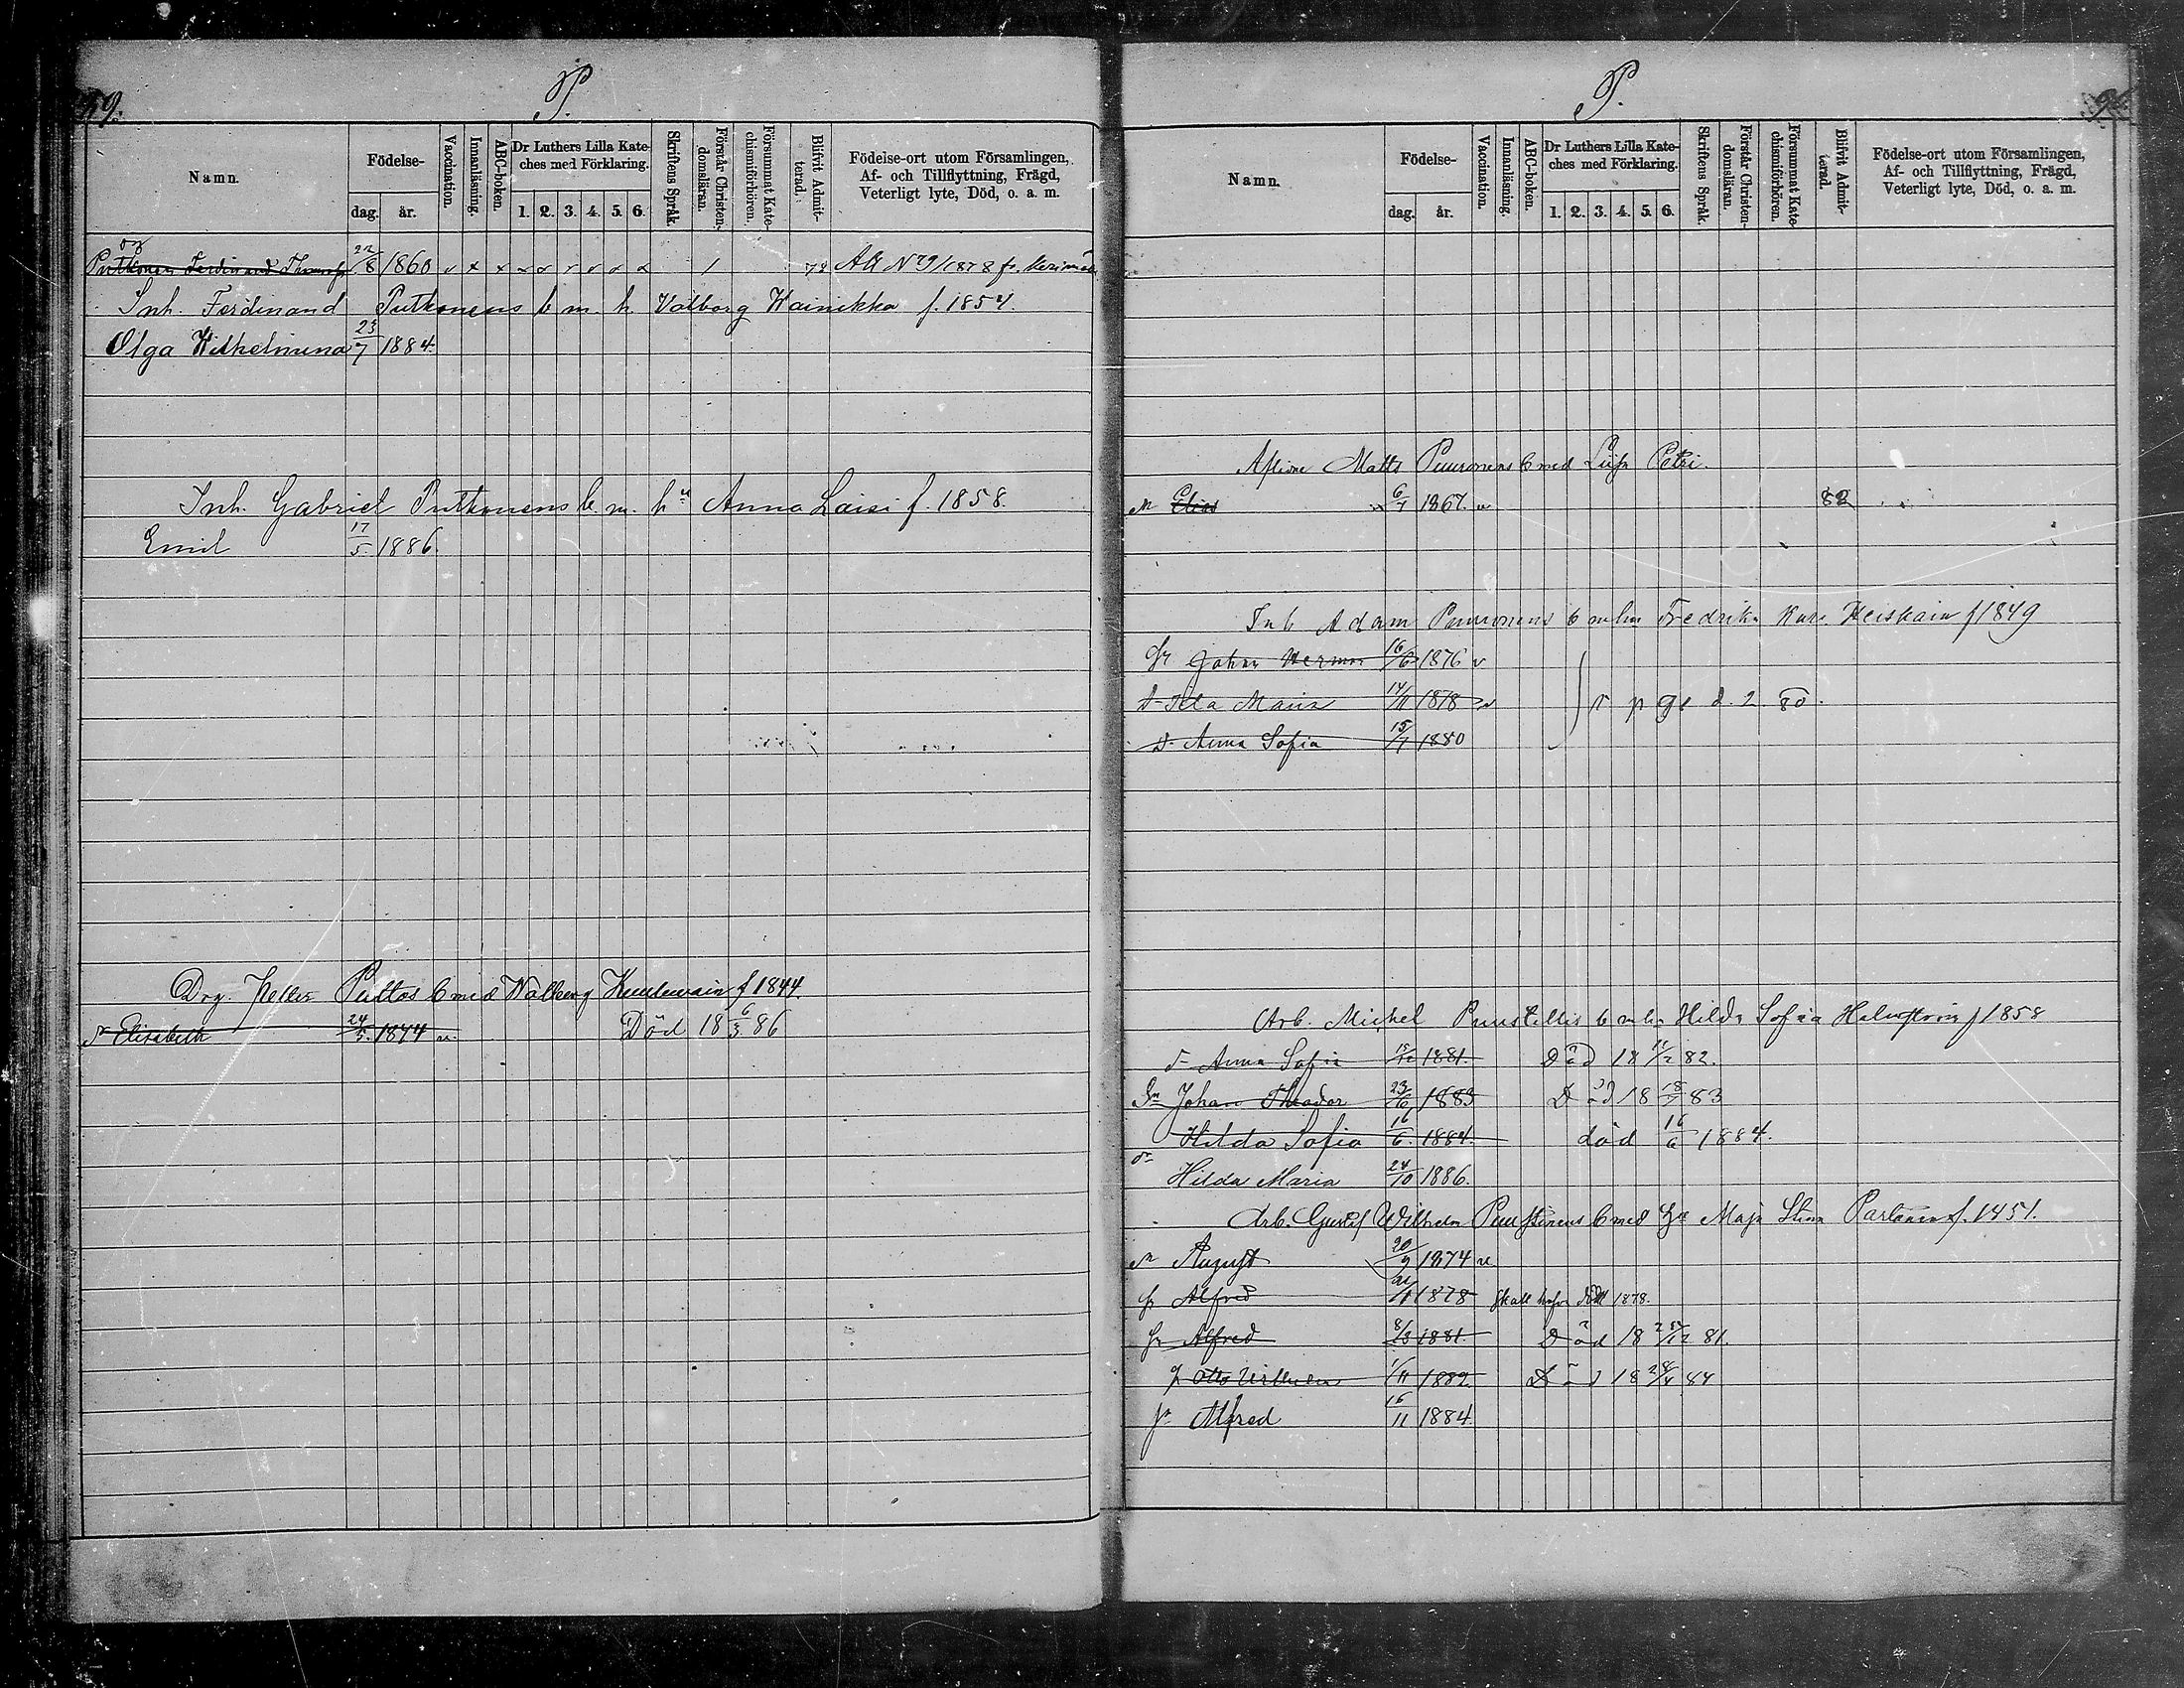 P.
Namn.
Födelse-
dag.
år.
Vaccination.
Innanläsning.
ABC-boken.
Dr Luthers Lilla Kate-
ches med Förklaring.
1. 2. 3. 4. 5. 6.
Skriftens Språk.
Förstår Christen-
domsläran.
Försummat Kate-
chismiförhören.
Blifvit Admit-
terad.
Födelse-ort utom Församlingen,
Af- och Tillflyttning, Frägd,
Veterligt lyte, Död, o. a. m.
Putkonen Ferdinand 22/8 1860 1 78 No 9/1878 fr.
Inh. Ferdinand Putkonens b. m. h. Valborg Hainikka f. 1854.
Olga Wilhelmina 23/7 1884.
Inh. Gabriel Putkonens b. m. hu Anna Laisi f. 1858.
Emil 17/5 1886.
Drg. Petter Puttos b med Walborg f 1844.
Elisabeth 24/5 1874 Död 18 6/3 86
P.
Namn.
Födelse-
dag.
år.
Vaccination.
Innanläsning.
ABC-boken.
Dr Luthers Lilla Kate-
ches med Förklaring.
1. 2. 3. 4. 5. 6.
Skriftens Språk.
Förstår Christen-
domsläran.
Försummat Kate-
chismiförhören.
Blifvit Admit-
terad.
Födelse-ort utom Församlingen,
Af- och Tillflyttning, Frägd,
Veterligt lyte, Död, o. a. m.
Matts Puuronens b med Petri.
Elias 6/7 1867. 82
Inh Adam Puuronens b m hu Fredrika f 1849
Johan Herman 16/6 1876 v
Ida Maria 14/11 1878 v
Anna Sofia 15/7 1880
Arb. Michel Puustellis b m hu Hilda Sofia f 1858
Anna Sofia 1881. Död 18 11/2 82.
Johan Theodor 23/6 1883 Död 18 18/7 83
Hilda Sofia 16/6 1884. död 16/6 1884.
Hilda Maria 24/10 1886.
Arb. Gustaf Wilhelm Puustinens b med Maja Stina Partanen f. 1851.
August 20/9 1874
Alfred 1878 skall hafva dött 1878.
Alfred 8/3 1881. Död 18 81.
Otto Wilhelm 1/11 1882. Död 18 84
Alfred 16/11 1884.